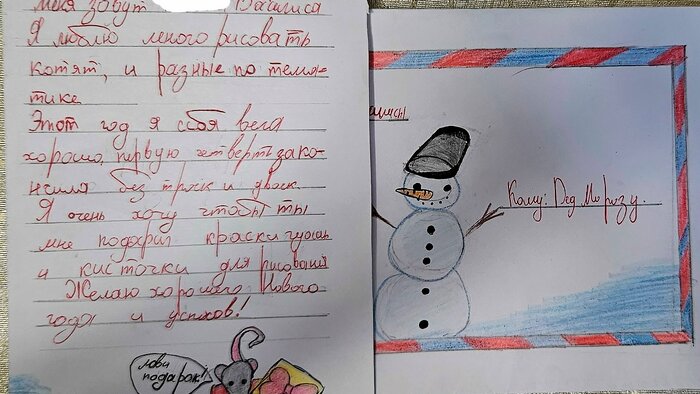 меня зовут Василиса
Я люблю много рисовать
котят, и разные по тема-
тике
Этот год я себя вела
хорошо, первую четверть зако-
нчила без троек и двоек.
Я очень хочу чтобы ты
мне подарил краски гуашь
и кисточки для рисования
Желаю хорошего Нового
года и успехов!
лови
подарок!
Кому: Дед Морозу.